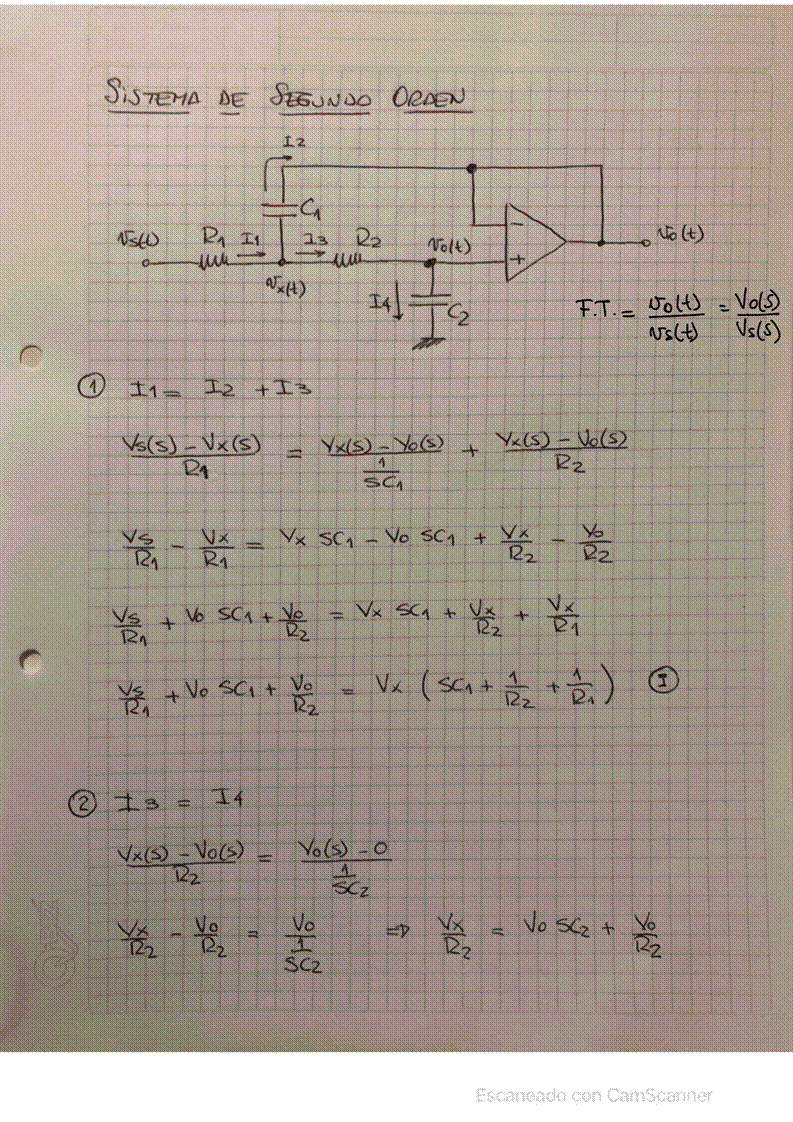 SISTEMA DE SEGUNDO ORDEN
I2
C1
vs(t) R1 I1 I3 R2 vo(t) - vo(t)
vx(t) +
I4 C2
F.T. = vo(t)/vs(t) = Vo(s)/Vs(s)
① I1 = I2 + I3
(Vs(s) - Vx(s))/R1 = (Vx(s) - Vo(s))/(1/SC1) + (Vx(s) - Vo(s))/R2
Vs/R1 - Vx/R1 = Vx SC1 - Vo SC1 + Vx/R2 - Vo/R2
Vs/R1 + Vo SC1 + Vo/R2 = Vx SC1 + Vx/R2 + Vx/R1
Vs/R1 + Vo SC1 + Vo/R2 = Vx (SC1 + 1/R2 + 1/R1) Ⓘ
② I3 = I4
(Vx(s) - Vo(s))/R2 = (Vo(s) - 0)/(1/SC2)
Vx/R2 - Vo/R2 = Vo/(1/SC2) ⇒ Vx/R2 = Vo SC2 + Vo/R2
Escaneado con CamScanner